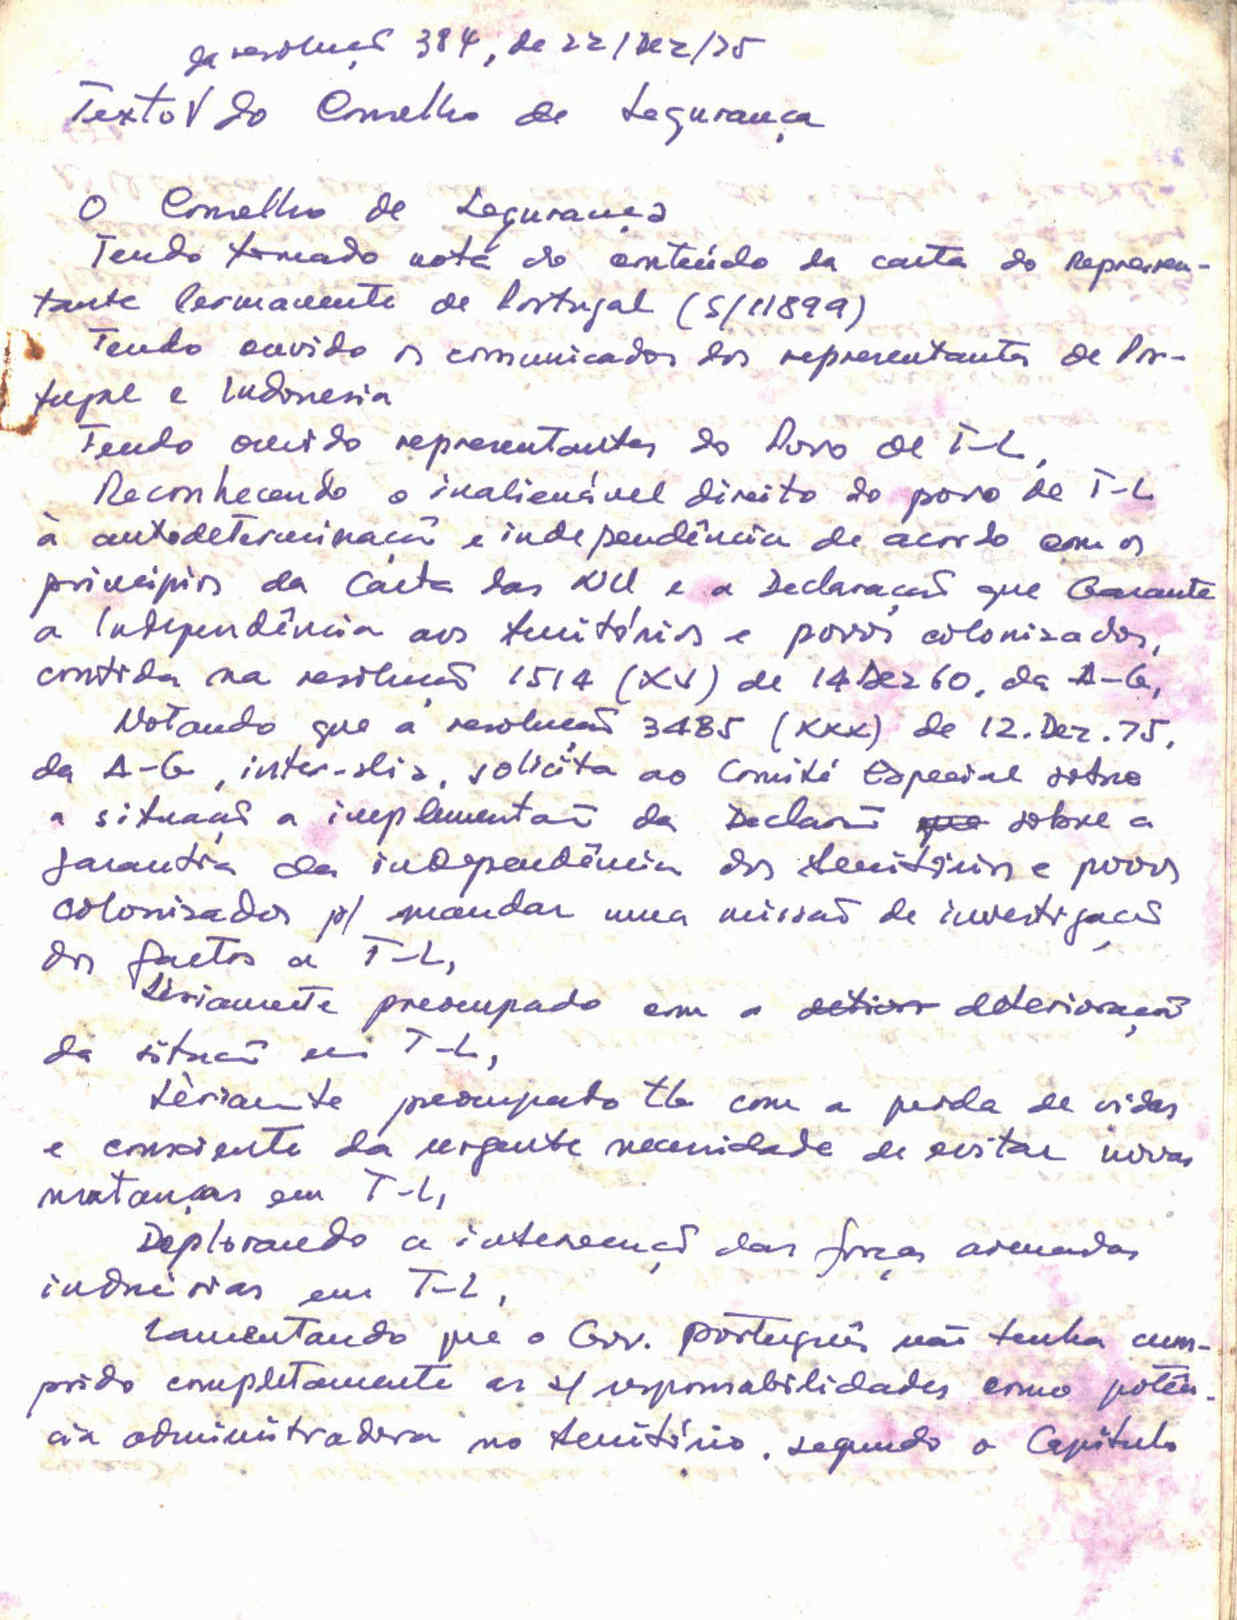 da resolução 384, de 22/Dez/75
Texto V do Conselho de Segurança
O Conselho de Segurança
Tendo tomado nota do conteúdo da carta do Represen-
tante Permanente de Portugal (S/11899)
Tendo ouvido os comunicados dos representantes de Por-
tugal e Indonesia
Tendo ouvido representantes do Povo de T-L,
Reconhecendo o inalienável direito do povo de T-L
à autodeterminação e independência de acordo com os
princípios da Carta das NU e a Declaração que Garante
a Independência aos territórios e povos colonizados,
contida na resolução 1514 (XV) de 14 Dez 60, da A-G,
Notando que a resolução 3485 (XXX) de 12.Dez.75,
da A-G, inter-alia, solicita ao Comité Especial sobre
a situação a implementaão da Declarão que sobre a
garantia da independência dos territórios e povos
colonizados p/ mandar uma missão de investigação
dos factos a T-L,
Sèriamente preocupado com a deterioração
da situaão em T-L,
Sèriamente preocupado tb com a perda de vidas
e consciente da urgente necessidade de evitar novas
matanças em T-L,
Deplorando a intervenção das forças armadas
indonésias em T-L,
Lamentando que o Gov. português não tenha cum-
prido completamente as s/ responsabilidades como potên-
cia administradora no território, segundo o Capítulo